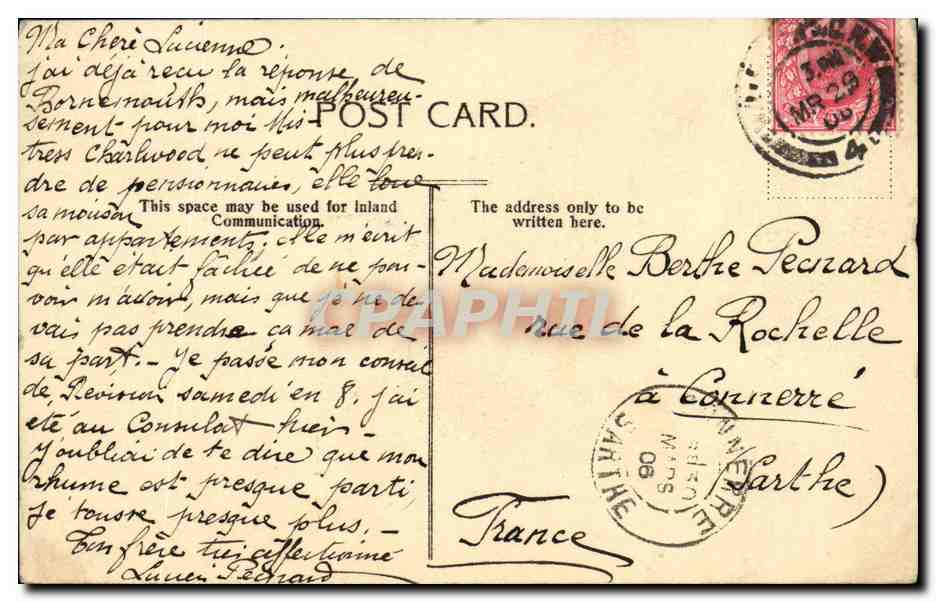 Ma Chère Lucienne.
j'ai déjà recu la réponse de
Bornemouth, mais malheureu-
sement pour moi Mis-
tress Charlwood ne peut plus pren-
dre de pensionnaires, elle loue
sa maison
par appartements. Elle m'écrit
qu'elle était fâchée de ne pou-
voir m'avoir, mais que je ne de-
vais pas prendre ça mal de
sa part. - Je passe mon conseil
de Révision samedi en 8. j'ai
été au Consulat hier -
J'oubliai de te dire que mon
rhume est presque parti,
je tousse presque plus. -
Ton frère très affectionné
Lucien Pecnard
POST CARD.
This space may be used for Inland
Communication.
The address only to be
written here.
Mademoiselle Berthe Pecnard
rue de la Rochelle
à Connerré
(Sarthe)
France
3. PM
MR 29
06
4
CONNERRÉ
MARS
06
SARTHE
CPAPHIL